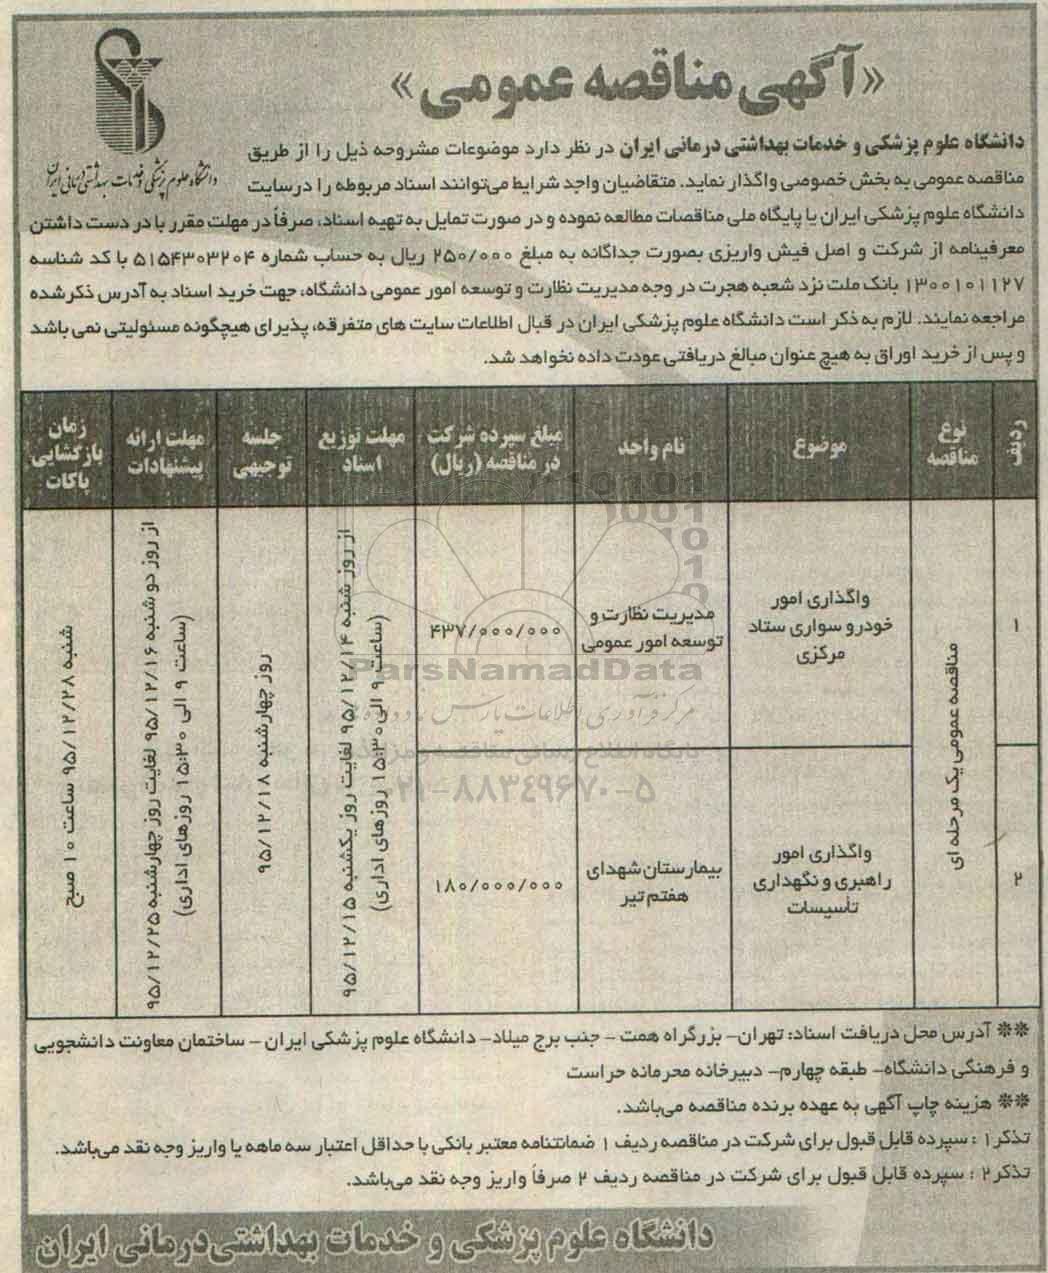 «آگهی مناقصه عمومی»
دانشگاه علوم پزشکی و خدمات بهداشتی درمانی ایران
دانشگاه علوم پزشکی و خدمات بهداشتی درمانی ایران در نظر دارد موضوعات مشروحه ذیل را از طریق
مناقصه عمومی به بخش خصوصی واگذار نماید. متقاضیان واجد شرایط می‌توانند اسناد مربوطه را درسایت
دانشگاه علوم پزشکی ایران یا پایگاه ملی مناقصات مطالعه نموده و در صورت تمایل به تهیه اسناد، صرفاً در مهلت مقرر با در دست داشتن
معرفینامه از شرکت و اصل فیش واریزی بصورت جداگانه به مبلغ ۲۵۰/۰۰۰ ریال به حساب شماره ۵۱۵۴۳۰۳۲۰۴ با کد شناسه
۱۳۰۰۱۰۱۱۲۷ بانک ملت نزد شعبه هجرت در وجه مدیریت نظارت و توسعه امور عمومی دانشگاه، جهت خرید اسناد به آدرس ذکرشده
مراجعه نمایند. لازم به ذکر است دانشگاه علوم پزشکی ایران در قبال اطلاعات سایت های متفرقه، پذیرای هیچگونه مسئولیتی نمی باشد
و پس از خرید اوراق به هیچ عنوان مبالغ دریافتی عودت داده نخواهد شد.
ردیف
نوع
مناقصه
موضوع
نام واحد
مبلغ سپرده شرکت
در مناقصه (ریال)
مهلت توزیع
اسناد
جلسه
توجیهی
مهلت ارائه
پیشنهادات
زمان
بازگشایی
پاکات
۱
مناقصه عمومی یک مرحله ای
واگذاری امور
خودرو سواری ستاد
مرکزی
مدیریت نظارت و
توسعه امور عمومی
۴۳۷/۰۰۰/۰۰۰
از روز شنبه ۹۵/۱۲/۱۴ لغایت روز یکشنبه ۹۵/۱۲/۱۵
(ساعت ۹ الی ۱۵:۳۰ روزهای اداری)
روز چهارشنبه ۹۵/۱۲/۱۸
از روز دو شنبه ۹۵/۱۲/۱۶ لغایت روز چهارشنبه ۹۵/۱۲/۲۵
(ساعت ۹ الی ۱۵:۳۰ روزهای اداری)
شنبه ۹۵/۱۲/۲۸ ساعت ۱۰ صبح
۲
واگذاری امور
راهبری و نگهداری
تأسیسات
بیمارستان شهدای
هفتم تیر
۱۸۰/۰۰۰/۰۰۰
ParsNamadData
مرکز فرآوری اطلاعات پارس نماد داده ها
پایگاه اطلاع رسانی مناقصه و مزایده
۰۲۱-۸۸۳۴۹۶۷۰-۵
** آدرس محل دریافت اسناد: تهران- بزرگراه همت - جنب برج میلاد- دانشگاه علوم پزشکی ایران - ساختمان معاونت دانشجویی
و فرهنگی دانشگاه- طبقه چهارم- دبیرخانه محرمانه حراست
** هزینه چاپ آگهی به عهده برنده مناقصه می‌باشد.
تذکر۱ : سپرده قابل قبول برای شرکت در مناقصه ردیف ۱ ضمانتنامه معتبر بانکی با حداقل اعتبار سه ماهه یا واریز وجه نقد می‌باشد.
تذکر۲ : سپرده قابل قبول برای شرکت در مناقصه ردیف ۲ صرفاً واریز وجه نقد می‌باشد.
دانشگاه علوم پزشکی و خدمات بهداشتی‌درمانی ایران